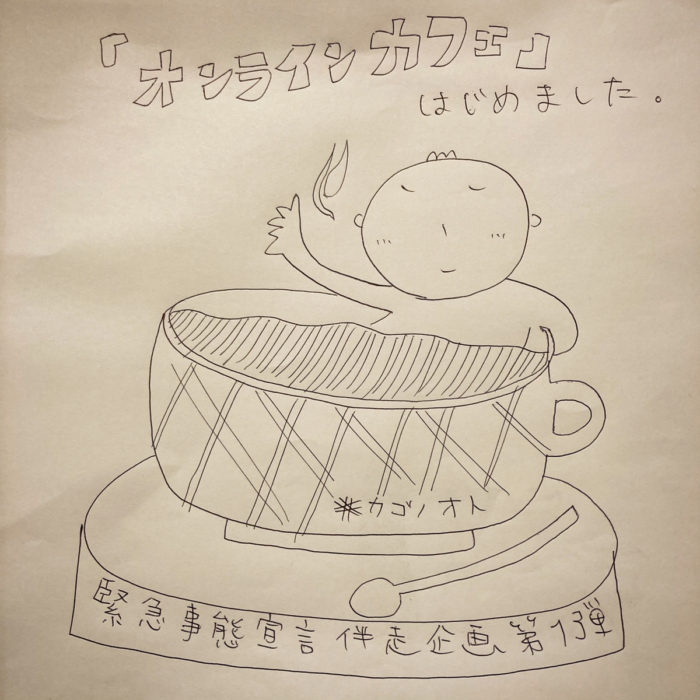 『オンラインカフェ』
はじめました。
※カゴノオト
緊急事態宣言伴走企画、第1弾